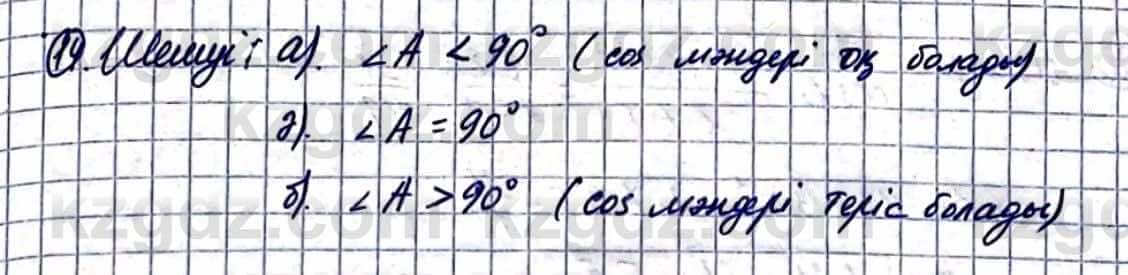 19. Шешуі: а). ∠A < 90° (cos мәндері оң болады)
ә). ∠A = 90°
б). ∠A > 90° (cos мәндері теріс болады)
kzgdz.com